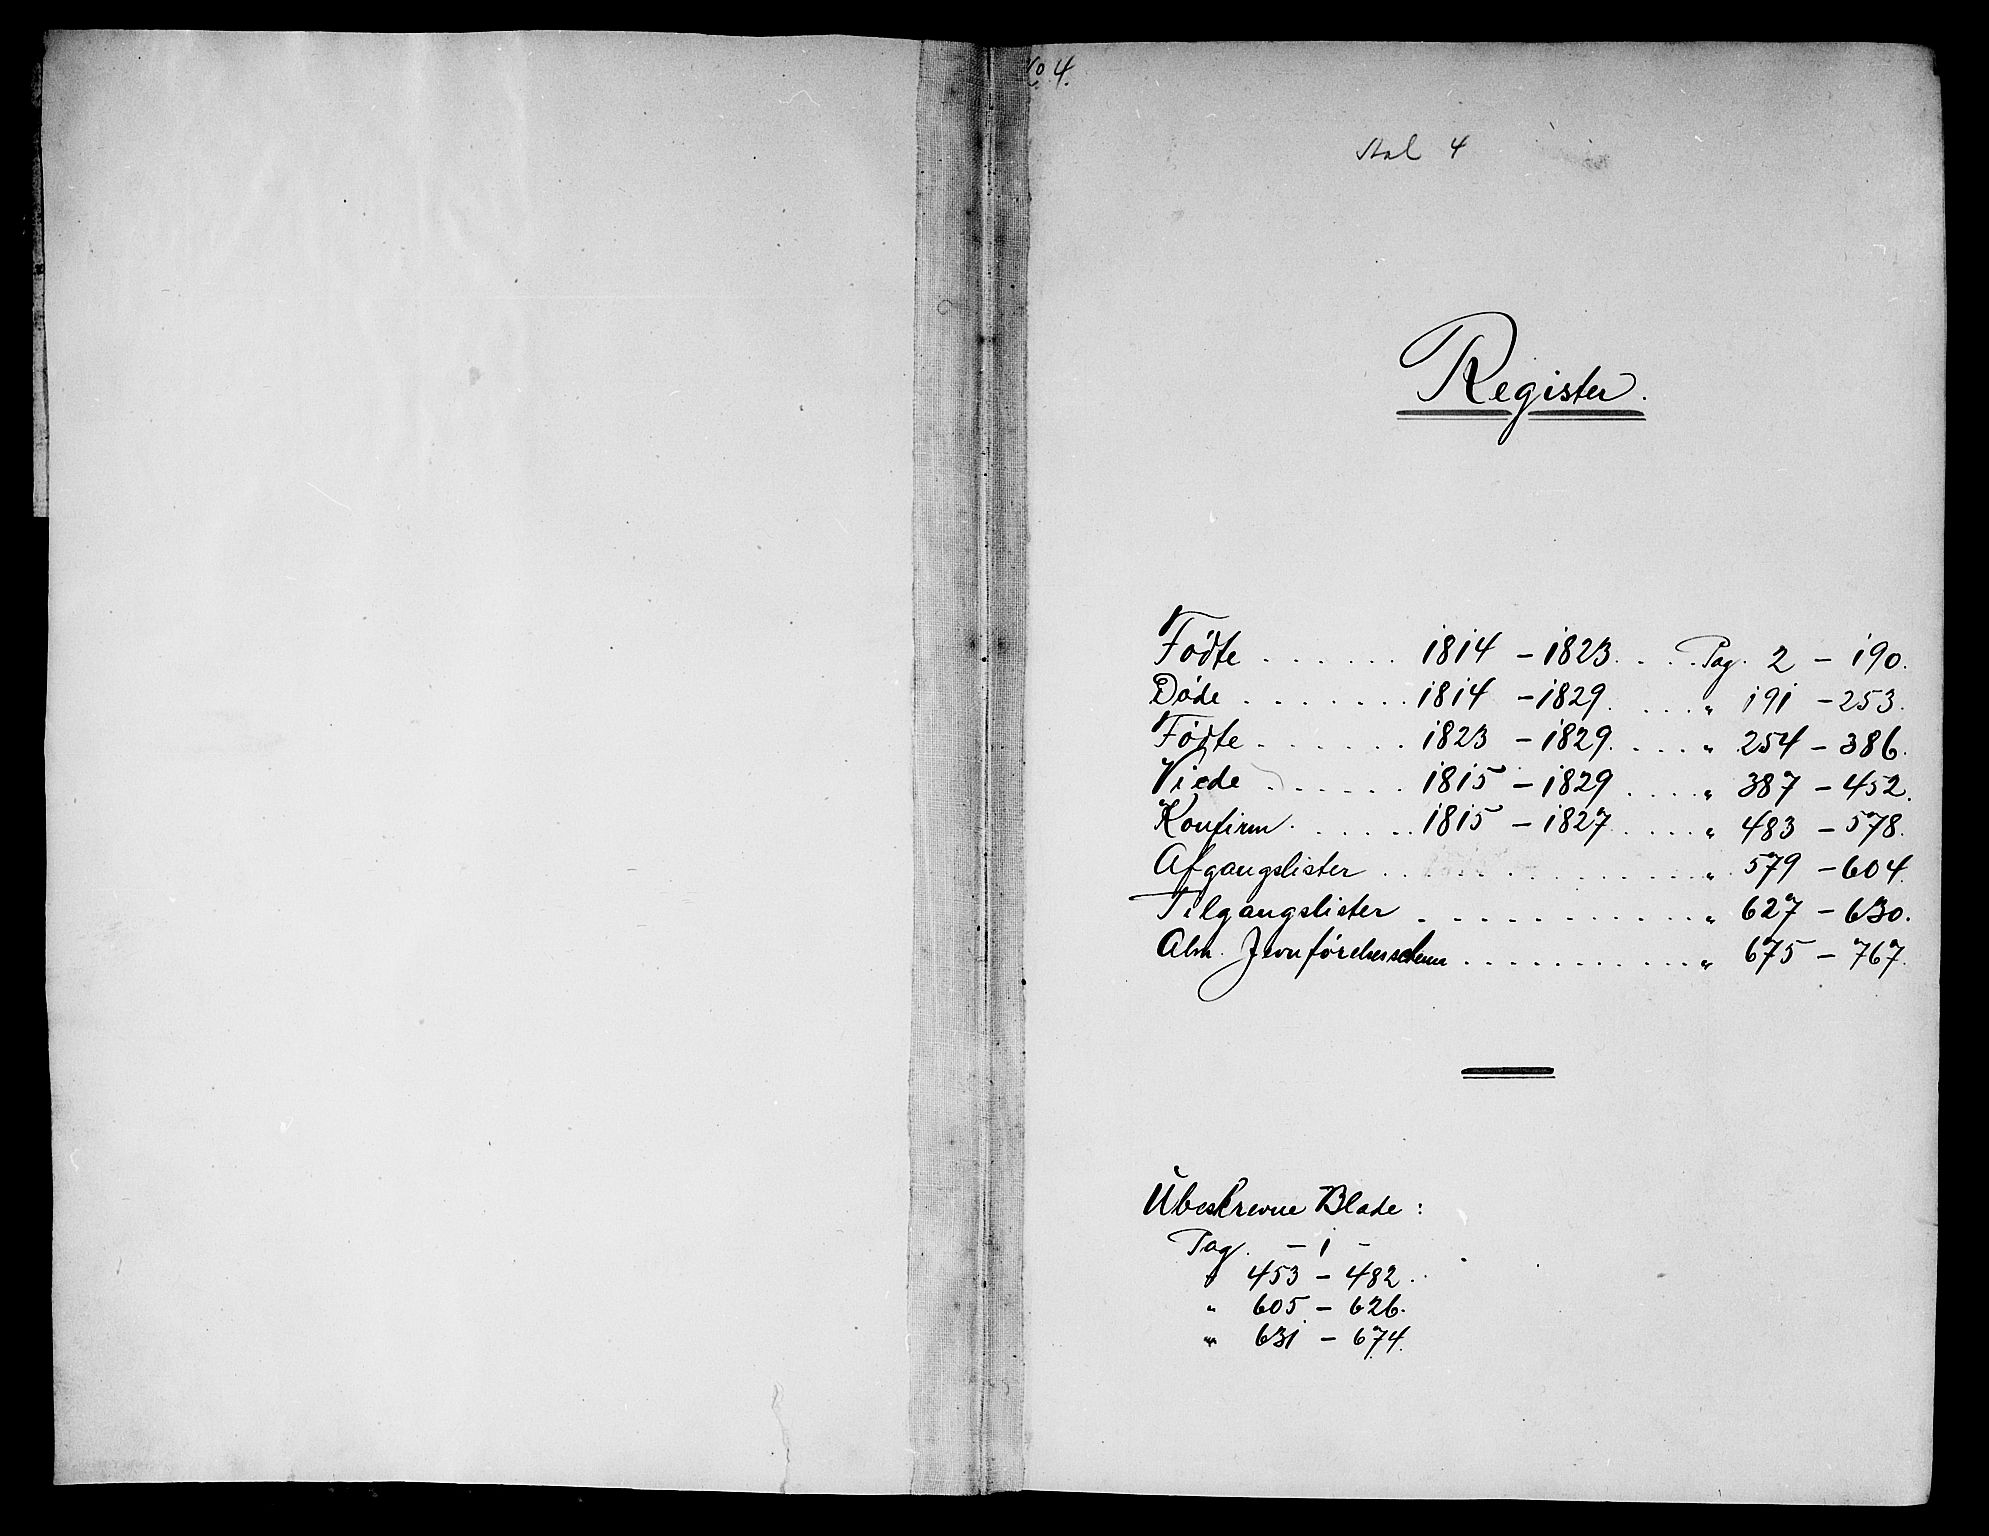 No 4.
Stal 4
Register.
Födte . . . . . . 1814 – 1823 . . . Pag. 2 – 190.
Döde . . . . . . . 1814 – 1829 . . . . " 191 – 253.
Födte . . . . . . 1823 – 1829 . . . . " 254 – 386.
Viede . . . . . . 1815 – 1829 . . . . " 387 – 452.
Konfirm. . . . . . 1815 – 1827 . . . . " 483 – 578.
Afgangslister . . . . . . . . . . . . " 579 – 604.
Tilgangslister . . . . . . . . . . . . " 627 – 630.
Alm. Jevnförelses . . . . . . . . . . . " 675 – 767.
Ubeskrevne Blade :
Pag. – 1 –
" 453 – 482.
" 605 – 626.
" 631 – 674.